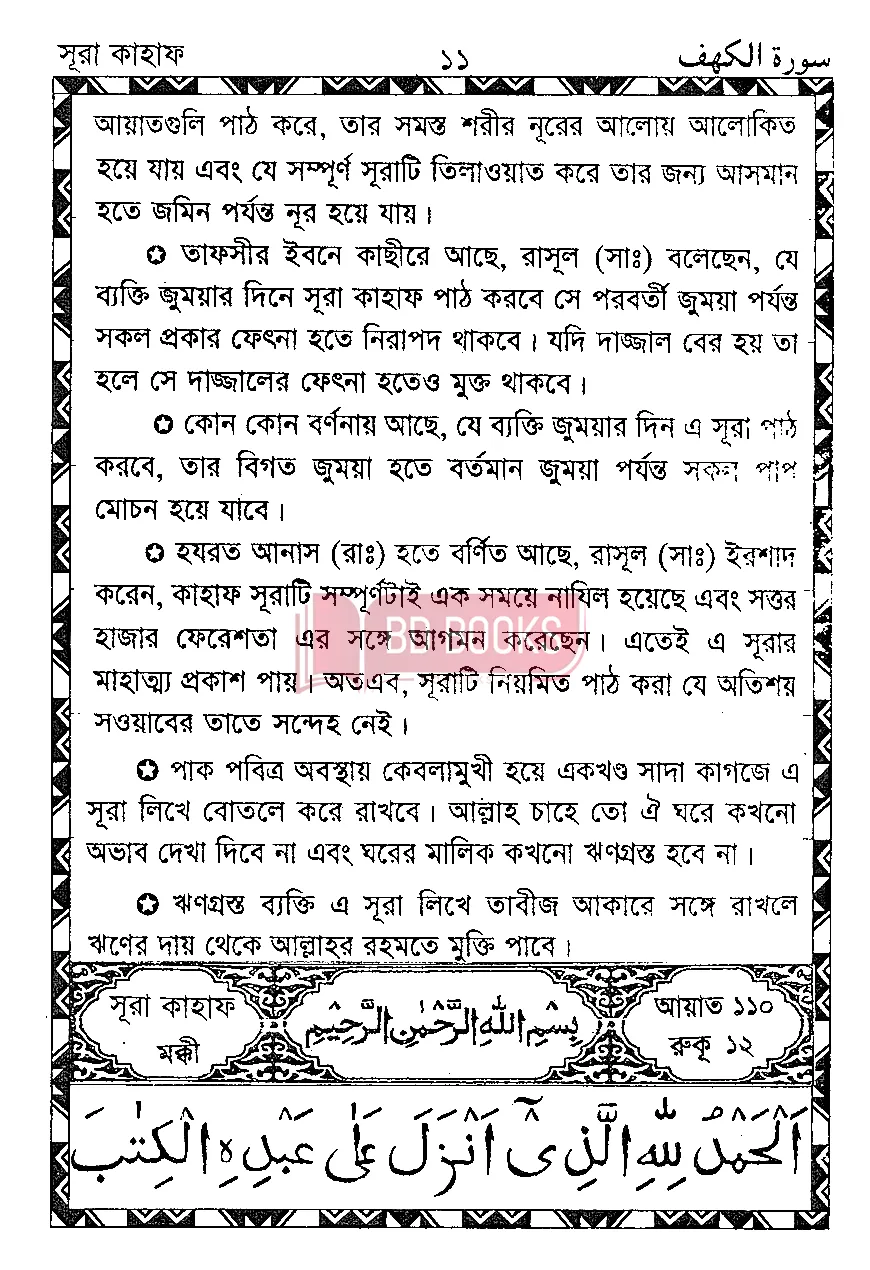 সূরা কাহাফ ১১ سورة الكهف
আয়াতগুলি পাঠ করে, তার সমস্ত শরীর নূরের আলোয় আলোকিত
হয়ে যায় এবং যে সম্পূর্ণ সূরাটি তিলাওয়াত করে তার জন্য আসমান
হতে জমিন পর্যন্ত নূর হয়ে যায়।
✪ তাফসীর ইবনে কাছীরে আছে, রাসূল (সাঃ) বলেছেন, যে
ব্যক্তি জুময়ার দিনে সূরা কাহাফ পাঠ করবে সে পরবর্তী জুময়া পর্যন্ত
সকল প্রকার ফেৎনা হতে নিরাপদ থাকবে। যদি দাজ্জাল বের হয় তা
হলে সে দাজ্জালের ফেৎনা হতেও মুক্ত থাকবে।
✪ কোন কোন বর্ণনায় আছে, যে ব্যক্তি জুময়ার দিন এ সূরা পাঠ
করবে, তার বিগত জুময়া হতে বর্তমান জুময়া পর্যন্ত সকল পাপ
মোচন হয়ে যাবে।
✪ হযরত আনাস (রাঃ) হতে বর্ণিত আছে, রাসূল (সাঃ) ইরশাদ
করেন, কাহাফ সূরাটি সম্পূর্ণটাই এক সময়ে নাযিল হয়েছে এবং সত্তর
হাজার ফেরেশতা এর সঙ্গে আগমন করেছেন। এতেই এ সূরার
মাহাত্ম্য প্রকাশ পায়। অতএব, সূরাটি নিয়মিত পাঠ করা যে অতিশয়
সওয়াবের তাতে সন্দেহ নেই।
✪ পাক পবিত্র অবস্থায় কেবলামুখী হয়ে একখণ্ড সাদা কাগজে এ
সূরা লিখে বোতলে করে রাখবে। আল্লাহ চাহে তো ঐ ঘরে কখনো
অভাব দেখা দিবে না এবং ঘরের মালিক কখনো ঋণগ্রস্ত হবে না।
✪ ঋণগ্রস্ত ব্যক্তি এ সূরা লিখে তাবীজ আকারে সঙ্গে রাখলে
ঋণের দায় থেকে আল্লাহর রহমতে মুক্তি পাবে।
সূরা কাহাফ
মক্কী
بِسْمِ اللّٰهِ الرَّحْمٰنِ الرَّحِيْمِ
আয়াত ১১০
রুকূ ১২
اَلْحَمْدُ لِلّٰهِ الَّذِىْٓ اَنْزَلَ عَلٰى عَبْدِهِ الْكِتٰبَ
BB BOOKS